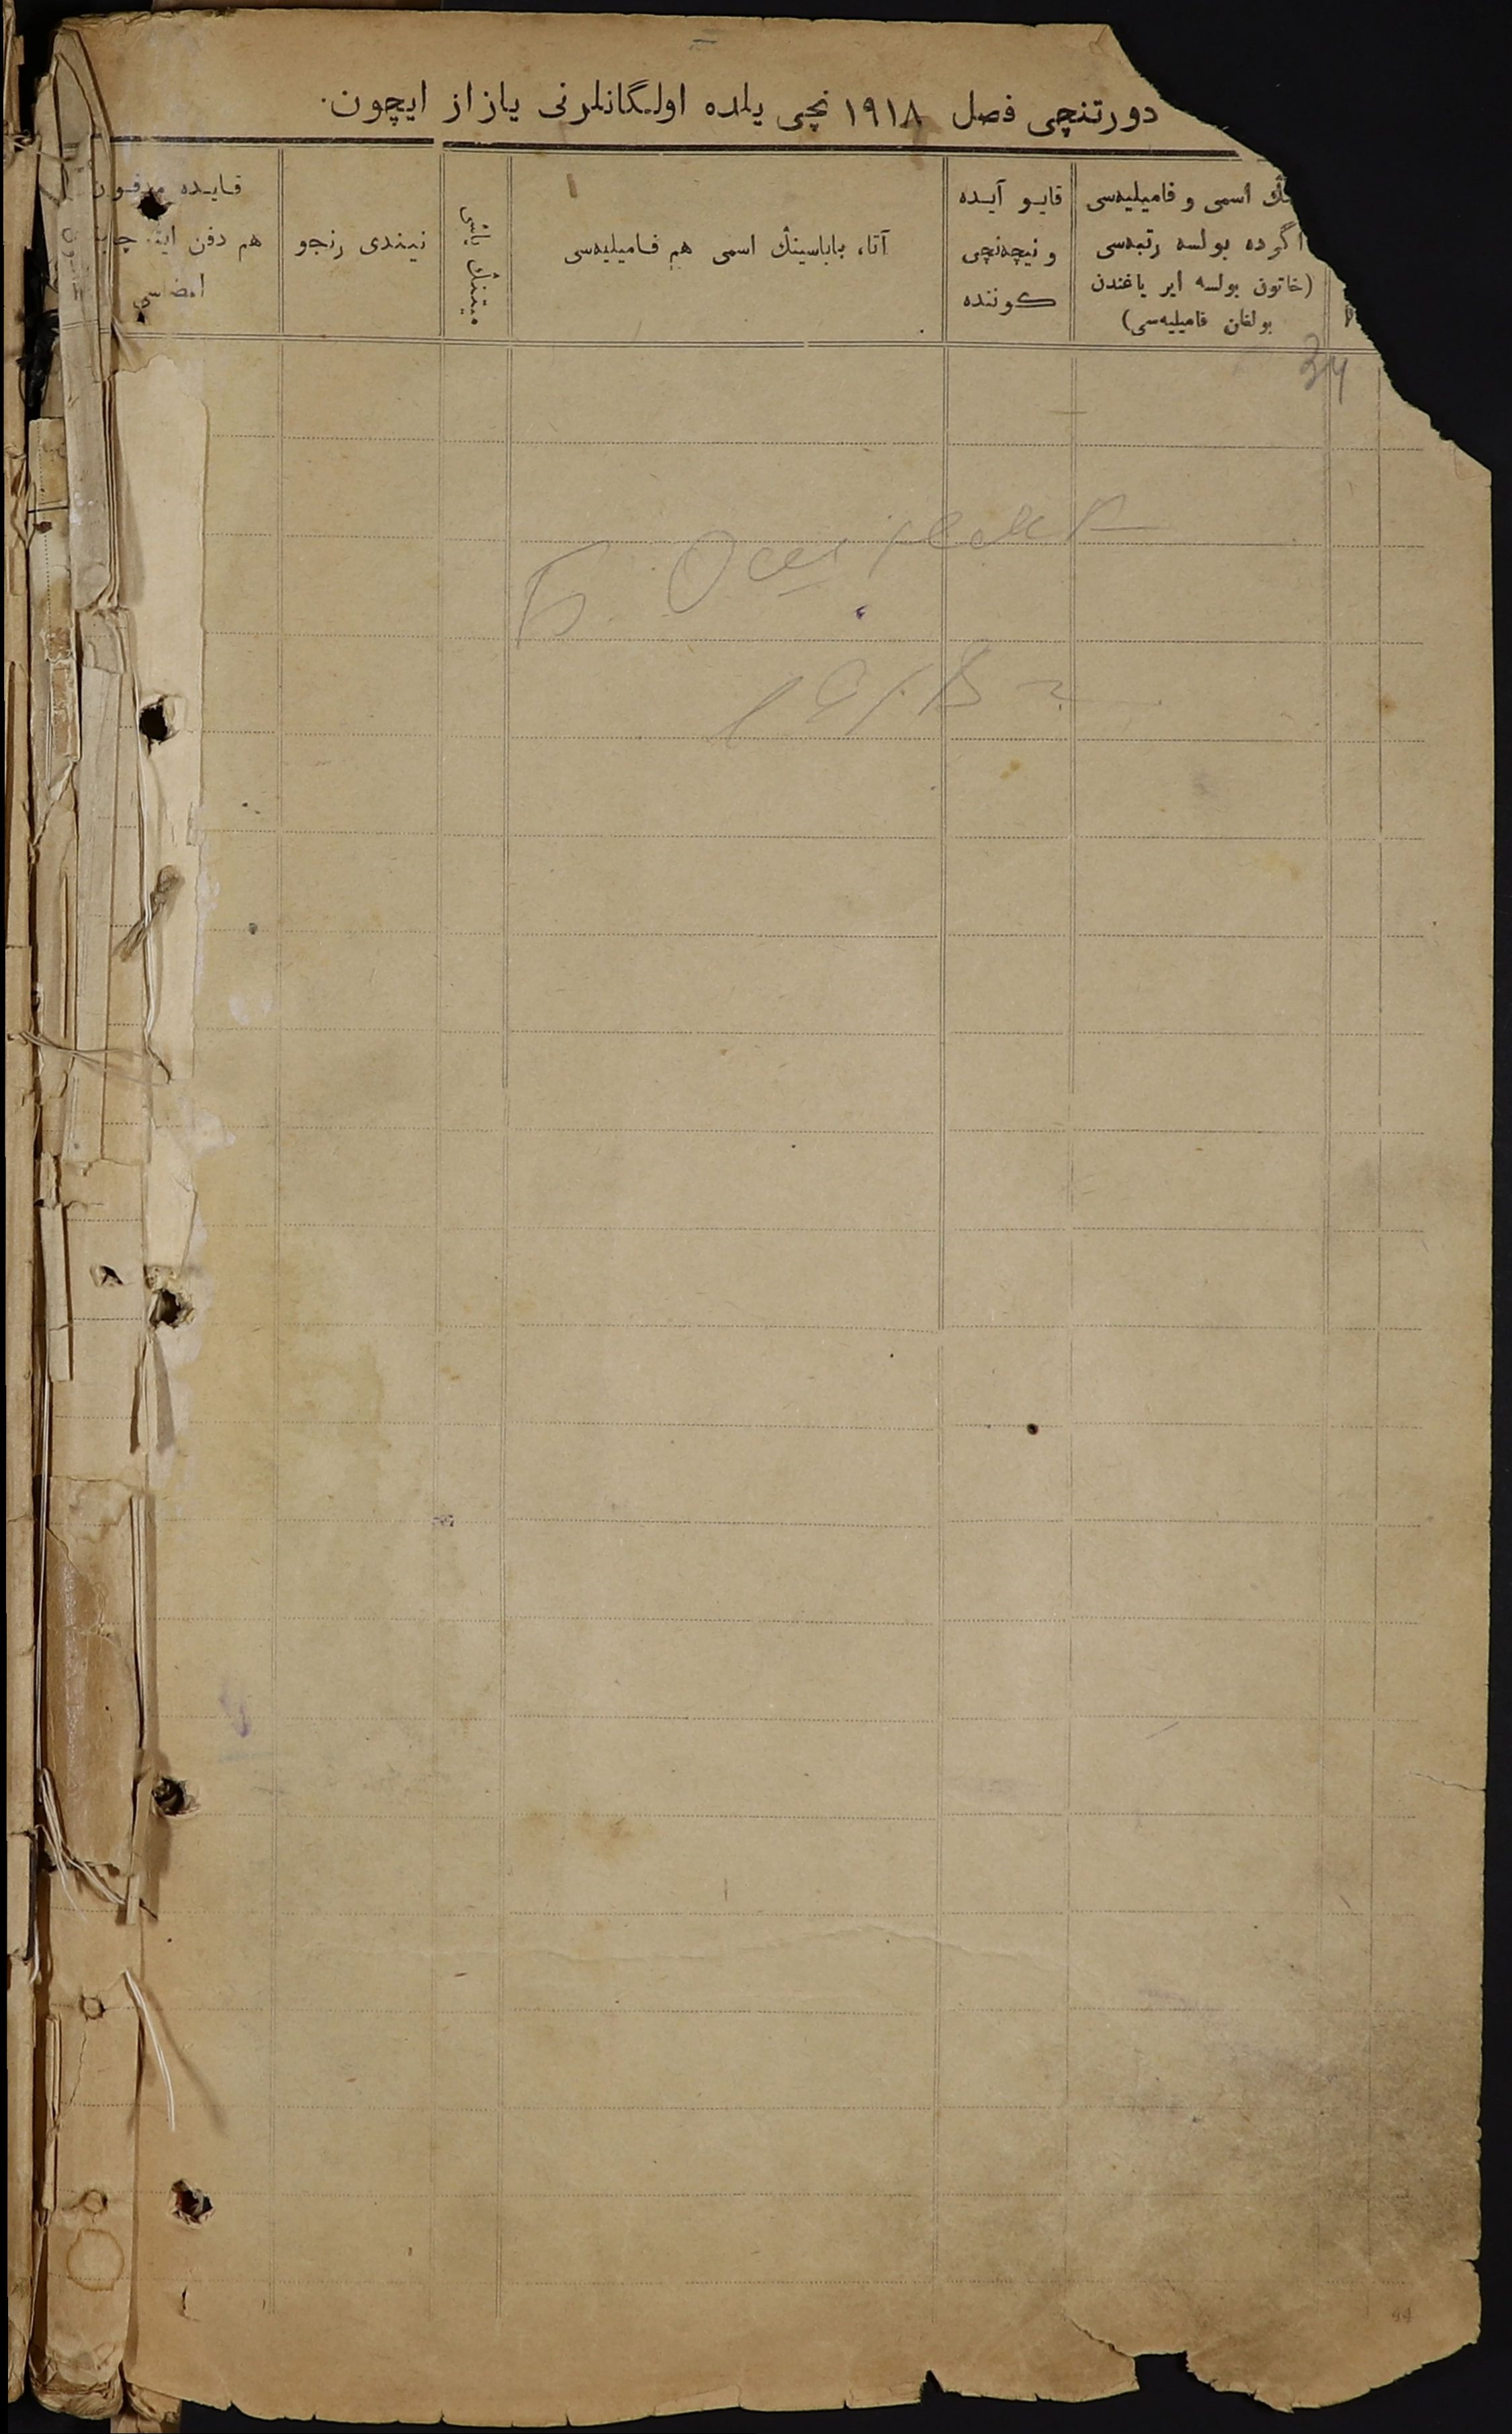 دورتنچی فصل ١٩١٨ نچی یلده اولگانلرنی یازار ایچون.
نڭ اسمی و فامیلیه‌سی
اگرده بولسه رتبه‌سی
(خاتون بولسه ایر یاغندن
بولغان فامیلیه‌سی)
قایو آیده
و نیچه‌نچی
کوننده
آتا، باباسینڭ اسمی هم فامیلیه‌سی
میتنڭ یاشی
نیندی رنجو
قایده مدفون
هم دفن ایته
امضاسی
34
1918 г
44